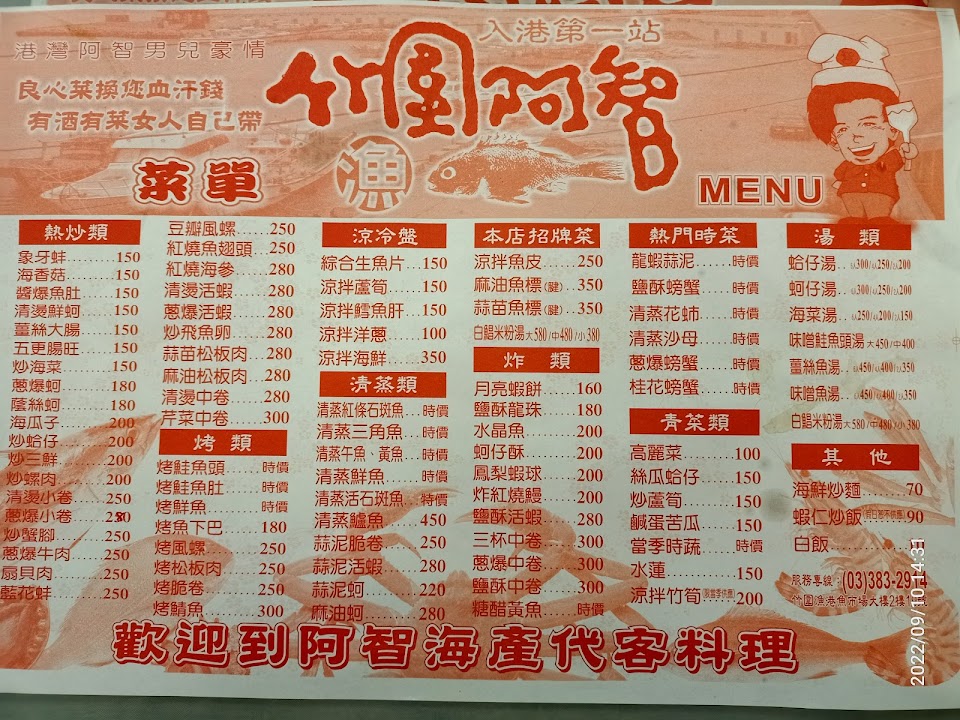 入港第一站
港灣阿智男兒豪情
良心菜換您血汗錢
有酒有菜女人自己帶
竹圍阿智
漁
菜單
MENU
熱炒類
象牙蚌......150
海香菇......150
醬爆魚肚......150
清燙鮮蚵......150
薑絲大腸......150
五更腸旺......150
炒海菜......150
蔥爆蚵......180
蔭絲蚵......180
海瓜子......200
炒蛤仔......200
炒三鮮......200
炒螺肉......200
清燙小卷......250
蔥爆小卷......250
炒蟹腳......250
蔥爆牛肉......250
扇貝肉......250
藍花蚌......250
豆瓣風螺......250
紅燒魚翅頭...250
紅燒海參......280
清燙活蝦......280
蔥爆活蝦......280
炒飛魚卵......280
蒜苗松板肉...280
麻油松板肉...280
清燙中卷......280
芹菜中卷......300
烤 類
烤鮭魚頭......時價
烤鮭魚肚......時價
烤鮮魚......時價
烤魚下巴......180
烤風螺......250
烤松板肉......250
烤脆卷......250
烤鯖魚......300
涼冷盤
綜合生魚片...150
涼拌蘆筍......150
涼拌鱈魚肝...150
涼拌洋蔥......100
涼拌海鮮......350
清蒸類
清蒸紅條石斑魚...時價
清蒸三角魚......時價
清蒸午魚、黃魚...時價
清蒸鮮魚......時價
清蒸活石斑魚...時價
清蒸鱸魚......450
蒜泥脆卷......250
蒜泥活蝦......280
蒜泥蚵......220
麻油蚵......280
本店招牌菜
涼拌魚皮......250
麻油魚標(腱)...350
蒜苗魚標(腱)...350
白鯧米粉湯大580/中480/小380
炸 類
月亮蝦餅......160
鹽酥龍珠......180
水晶魚......200
蚵仔酥......200
鳳梨蝦球......200
炸紅燒鰻......200
鹽酥活蝦......280
三杯中卷......300
蔥爆中卷......300
鹽酥中卷......300
糖醋黃魚......時價
熱門時菜
龍蝦蒜泥......時價
鹽酥螃蟹......時價
清蒸花蚶......時價
清蒸沙母......時價
蔥爆螃蟹......時價
桂花螃蟹......時價
青菜類
高麗菜......100
絲瓜蛤仔......150
炒蘆筍......150
鹹蛋苦瓜......150
當季時蔬......時價
水蓮......150
涼拌竹筍(限當季供應)200
湯 類
蛤仔湯...大300/中250/小200
蚵仔湯...大300/中250/小200
海菜湯...大250/中200/小150
味噌鮭魚頭湯大450/中400
薑絲魚湯...大450/中400/小350
味噌魚湯...大450/中400/小350
白鯧米粉湯大580/中480/小380
其 他
海鮮炒麵......70
蝦仁炒飯 90
白飯......
服務專線:(03)383-2914
竹圍漁港魚市場大樓2樓
歡迎到阿智海產代客料理
2022/09/10 14:31